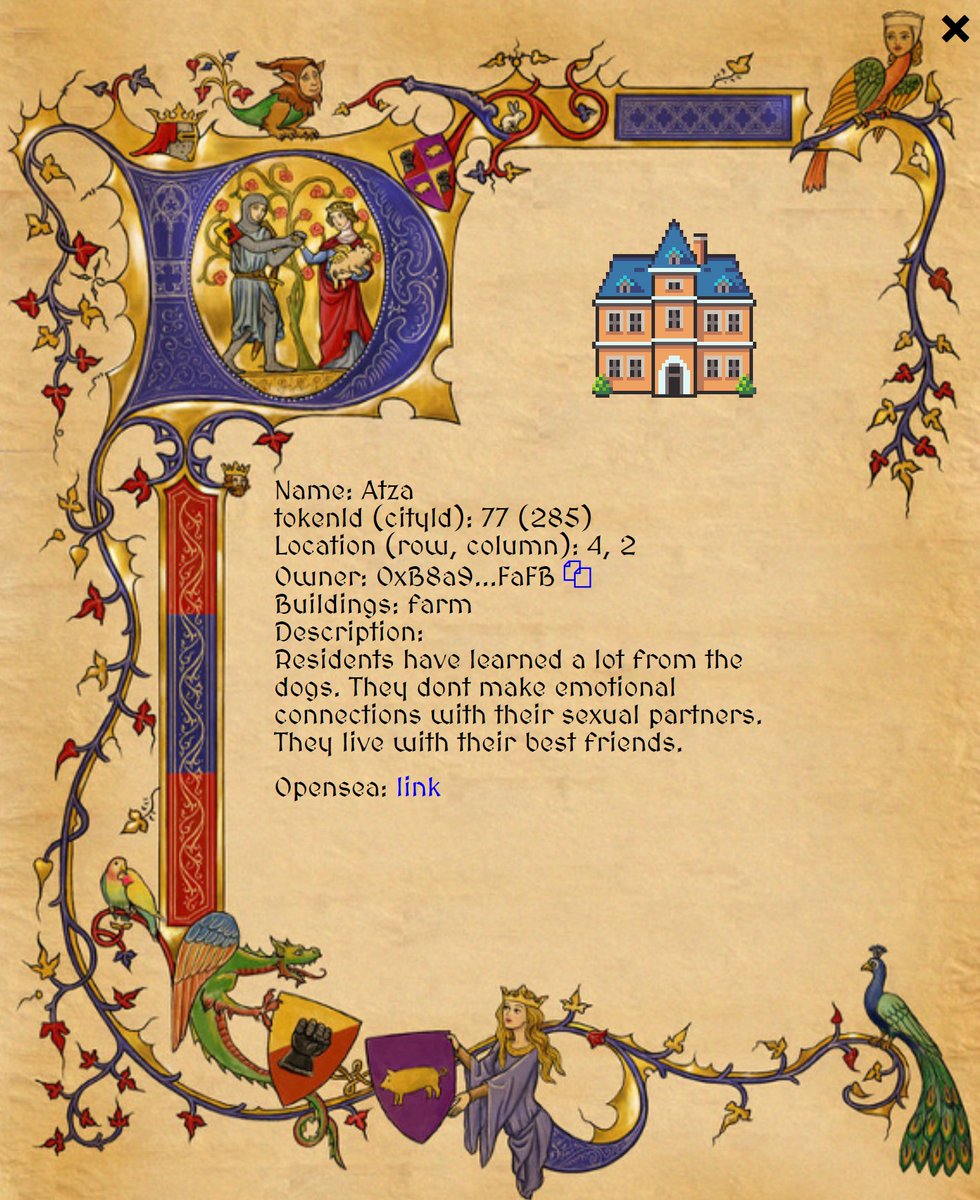 Name: Atza
tokenId (cityId): 77 (285)
Location (row, column): 4, 2
Owner: 0xB8a9...FaFB
Buildings: farm
Description:
Residents have learned a lot from the
dogs. They dont make emotional
connections with their sexual partners.
They live with their best friends.
Opensea: link